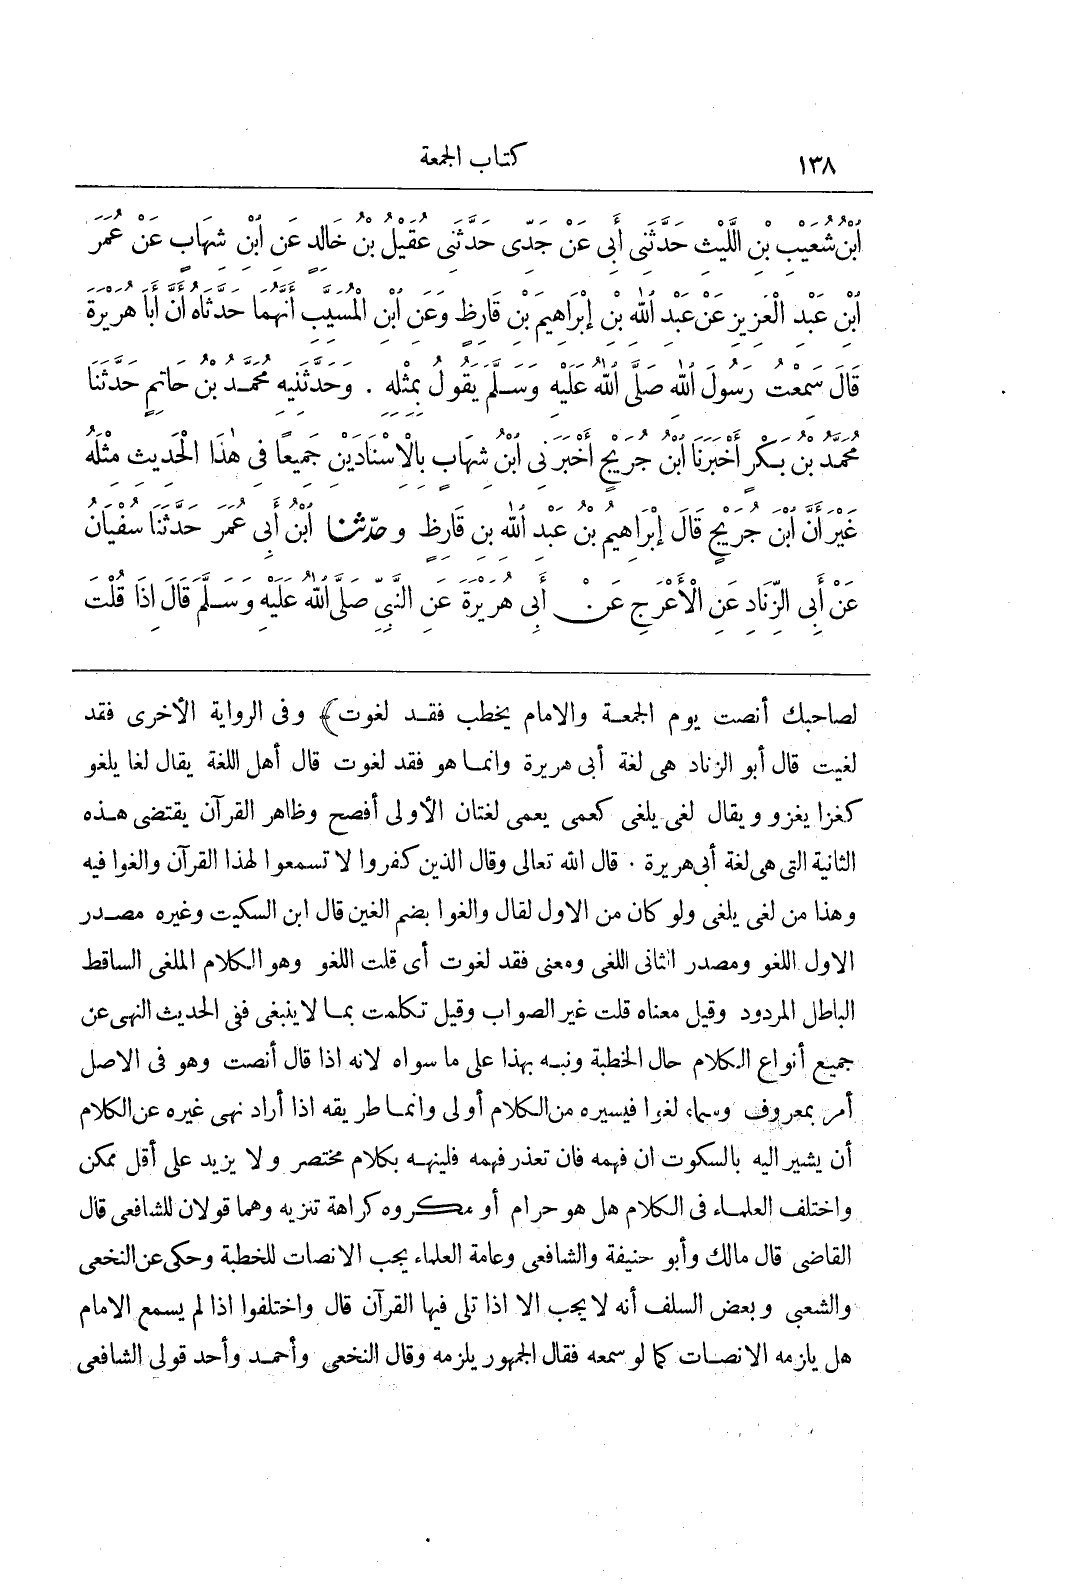 ١٣٨ كتاب الجمعة
ابْنُ شُعَيْبِ بْنِ اللَّيْثِ حَدَّثَنِى أَبِى عَنْ جَدِّى حَدَّثَنِى عُقَيْلُ بْنُ خَالِدٍ عَنِ ابْنِ شِهَابٍ عَنْ عُمَرَ
ابْنِ عَبْدِ الْعَزِيزِ عَنْ عَبْدِ اللهِ بْنِ إِبْرَاهِيمَ بْنِ قَارِظٍ وَعَنِ ابْنِ الْمُسَيِّبِ أَنَّهُمَا حَدَّثَاهُ أَنَّ أَبَا هُرَيْرَةَ
قَالَ سَمِعْتُ رَسُولَ اللهِ صَلَّى اللهُ عَلَيْهِ وَسَلَّمَ يَقُولُ بِمِثْلِهِ . وَحَدَّثَنِيهِ مُحَمَّدُ بْنُ حَاتِمٍ حَدَّثَنَا
مُحَمَّدُ بْنُ بَكْرٍ أَخْبَرَنَا ابْنُ جُرَيْجٍ أَخْبَرَنِى ابْنُ شِهَابٍ بِالْإِسْنَادَيْنِ جَمِيعًا فِى هٰذَا الْحَدِيثِ مِثْلَهُ
غَيْرَ أَنَّ ابْنَ جُرَيْجٍ قَالَ إِبْرَاهِيمُ بْنُ عَبْدِ اللهِ بْنِ قَارِظٍ و حدّثنا ابْنُ أَبِى عُمَرَ حَدَّثَنَا سُفْيَانُ
عَنْ أَبِى الزِّنَادِ عَنِ الْأَعْرَجِ عَنْ أَبِى هُرَيْرَةَ عَنِ النَّبِيِّ صَلَّى اللهُ عَلَيْهِ وَسَلَّمَ قَالَ إِذَا قُلْتَ
لصاحبك أنصت يوم الجمعة والامام يخطب فقد لغوت﴾ وفى الرواية الأخرى فقد
لغيت قال أبو الزناد هى لغة أبى هريرة وانما هو فقد لغوت قال أهل اللغة يقال لغا يلغو
كغزا يغزو ويقال لغى يلغى كعمى يعمى لغتان الأولى أفصح وظاهر القرآن يقتضى هذه
الثانية التى هى لغة أبى هريرة . قال الله تعالى وقال الذين كفروا لا تسمعوا لهذا القرآن والغوا فيه
وهذا من لغى يلغى ولو كان من الاول لقال والغوا بضم الغين قال ابن السكيت وغيره مصدر
الاول اللغو ومصدر الثانى اللغى ومعنى فقد لغوت أى قلت اللغو وهو الكلام الملغى الساقط
الباطل المردود وقيل معناه قلت غير الصواب وقيل تكلمت بما لاينبغى ففى الحديث النهى عن
جميع أنواع الكلام حال الخطبة ونبه بهذا على ما سواه لانه اذا قال أنصت وهو فى الاصل
أمر بمعروف وسماه لغوا فيسيره من الكلام أولى وانما طريقه اذا أراد نهى غيره عن الكلام
أن يشير اليه بالسكوت ان فهمه فان تعذر فهمه فلينهه بكلام مختصر ولا يزيد على أقل ممكن
واختلف العلماء فى الكلام هل هو حرام أو مكروه كراهة تنزيه وهما قولان للشافعى قال
القاضى قال مالك وأبو حنيفة والشافعى وعامة العلماء يجب الانصات للخطبة وحكى عن النخعى
والشعبى وبعض السلف أنه لا يجب الا اذا تلى فيها القرآن قال واختلفوا اذا لم يسمع الامام
هل يلزمه الانصات كما لو سمعه فقال الجمهور يلزمه وقال النخعى وأحمد وأحد قولى الشافعى